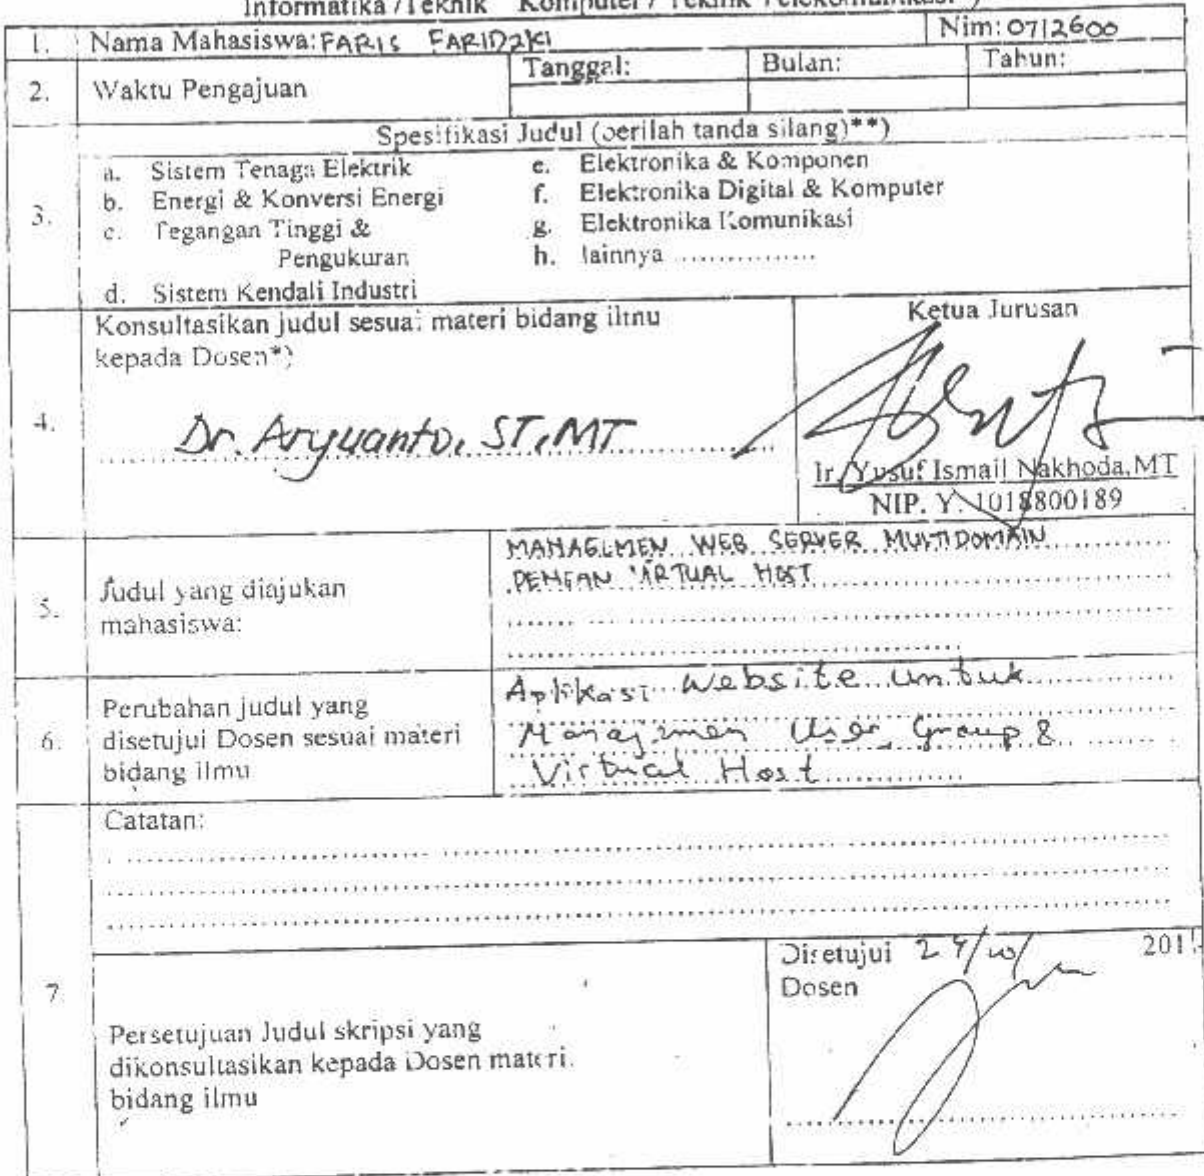 Informatika /Teknik Komputer / Teknik Telekomunikasi *)
1. Nama Mahasiswa: FARIS FARIDZKI Nim: 0712600
2. Waktu Pengajuan Tanggal: Bulan: Tahun:
3. Spesifikasi Judul (berilah tanda silang)**)
a. Sistem Tenaga Elektrik
b. Energi & Konversi Energi
c. Tegangan Tinggi &
Pengukuran
d. Sistem Kendali Industri
e. Elektronika & Komponen
f. Elektronika Digital & Komputer
g. Elektronika Komunikasi
h. lainnya ...............
4. Konsultasikan judul sesuai materi bidang ilmu
kepada Dosen*)
Dr. Aryuanto, ST, MT
Ketua Jurusan
Ir. Yusuf Ismail Nakhoda, MT
NIP. Y. 1018800189
5. Judul yang diajukan
mahasiswa:
MANAGEMEN WEB SERVER MULTIDOMAIN
DENGAN VIRTUAL HOST
6. Perubahan judul yang
disetujui Dosen sesuai materi
bidang ilmu
Aplikasi Website untuk
Manajemen User, Group &
Virtual Host
Catatan:
7. Persetujuan Judul skripsi yang
dikonsultasikan kepada Dosen materi
bidang ilmu
Disetujui /10/ 2011
Dosen